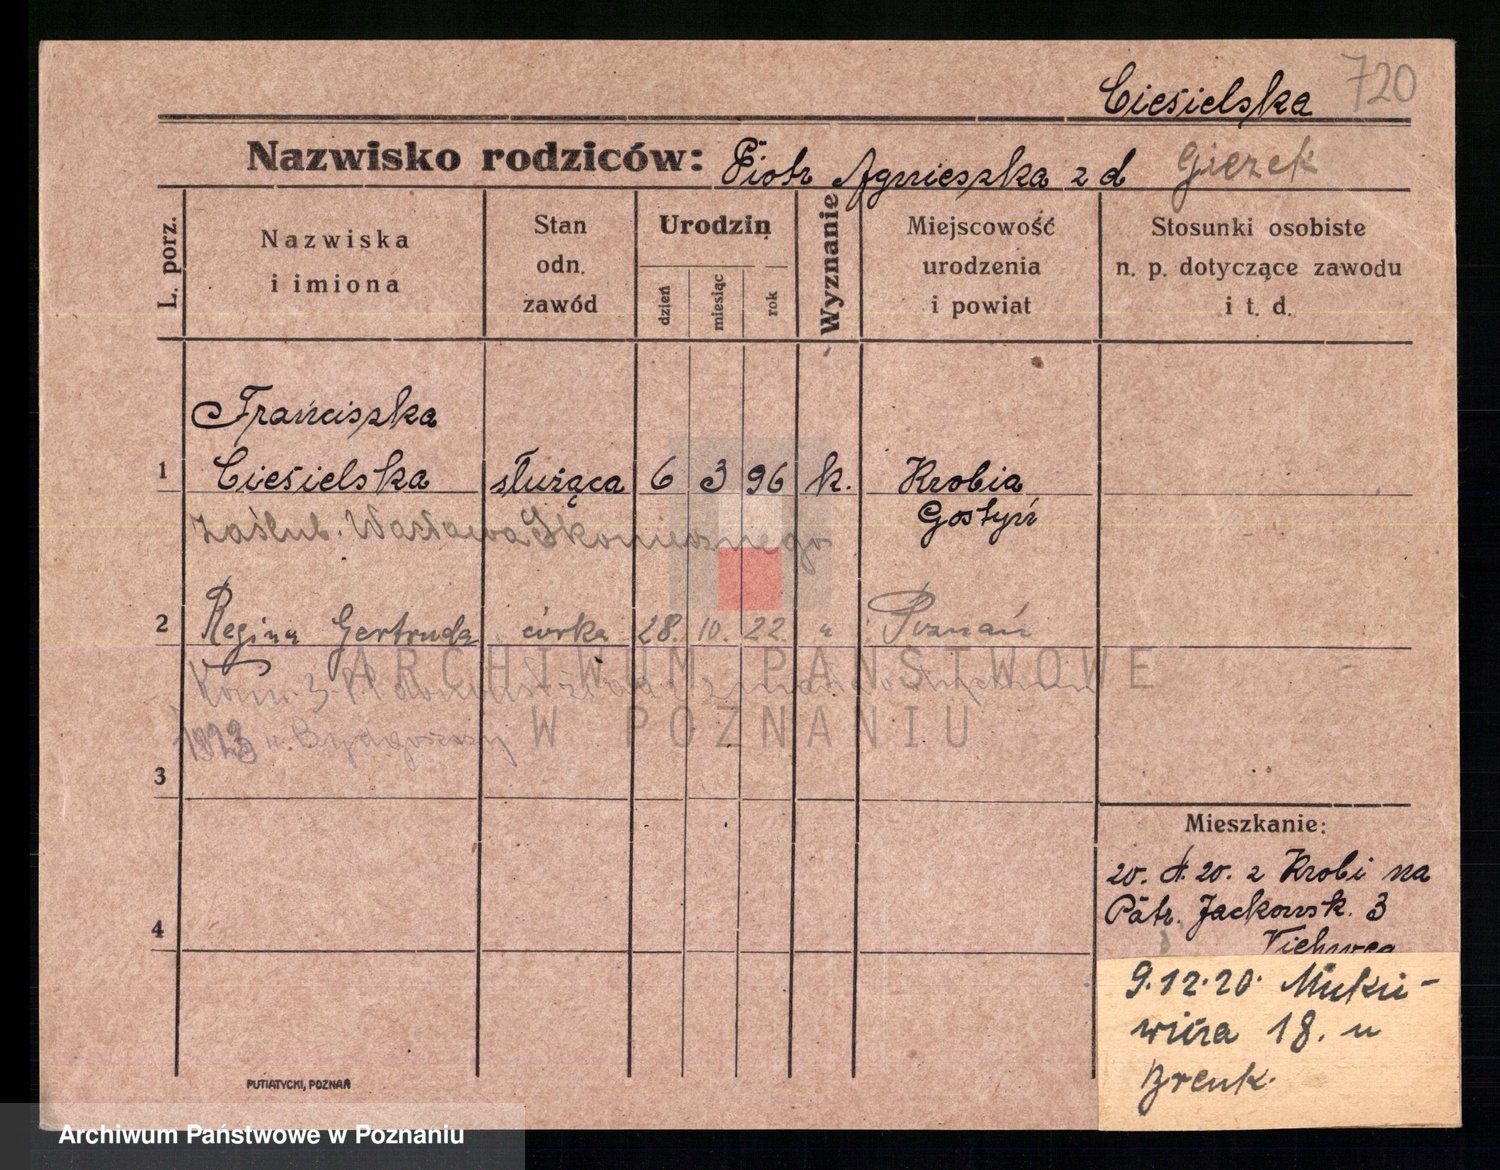 Ciesielska 720
Nazwisko rodziców: Piotr Agnieszka z d Giezek
L. porz.
Nazwiska
i imiona
Stan
odn.
zawód
Urodzin
dzień
miesiąc
rok
Wyznanie
Miejscowość
urodzenia
i powiat
Stosunki osobiste
n. p. dotyczące zawodu
i t. d.
Franciszka
1 Ciesielska służąca 6 3 96 k. Krobia
Gostyń
zaślub. Wacława Skoniecznego
2 Regina Gertruda córka 28. 10. 22. " Poznań
1923 w Bydgoszczy
3
4
Mieszkanie:
20. 20. z Krobi na
Patr. Jackowsk. 3
Viehweg
9.12.20. Mickie-
wicza 18. u
PUTIATYCKI, POZNAŃ
ARCHIWUM PAŃSTWOWE
W POZNANIU
Archiwum Państwowe w Poznaniu